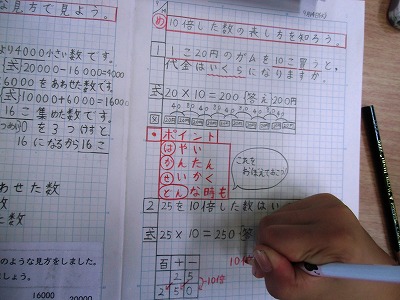 な見方で見よう。
より4000小さい数です。
{式}20000-16000=4000
6000をあわせた数です。
{式}10000+6000=16000
16こ集めた数です。
0を3つけすと、
16になるから16こ
わせた数
た数
た数
のような見方をしました。
しょう。
16000 20000
め 10倍した数の表し方を知ろう。
1 1こ20円のガムを10こ買うと、
代金はいくらになりますか。
式 20×10=200 {答え}200円
40 60 80
図 20円 20円 20円
・ポイント
はやい
かんたん
せいかく
どんな時も
これを
おぼえておこう!
2 25を10倍した数はい
式 25×10=250 {答
百十一
25
250
10倍
10